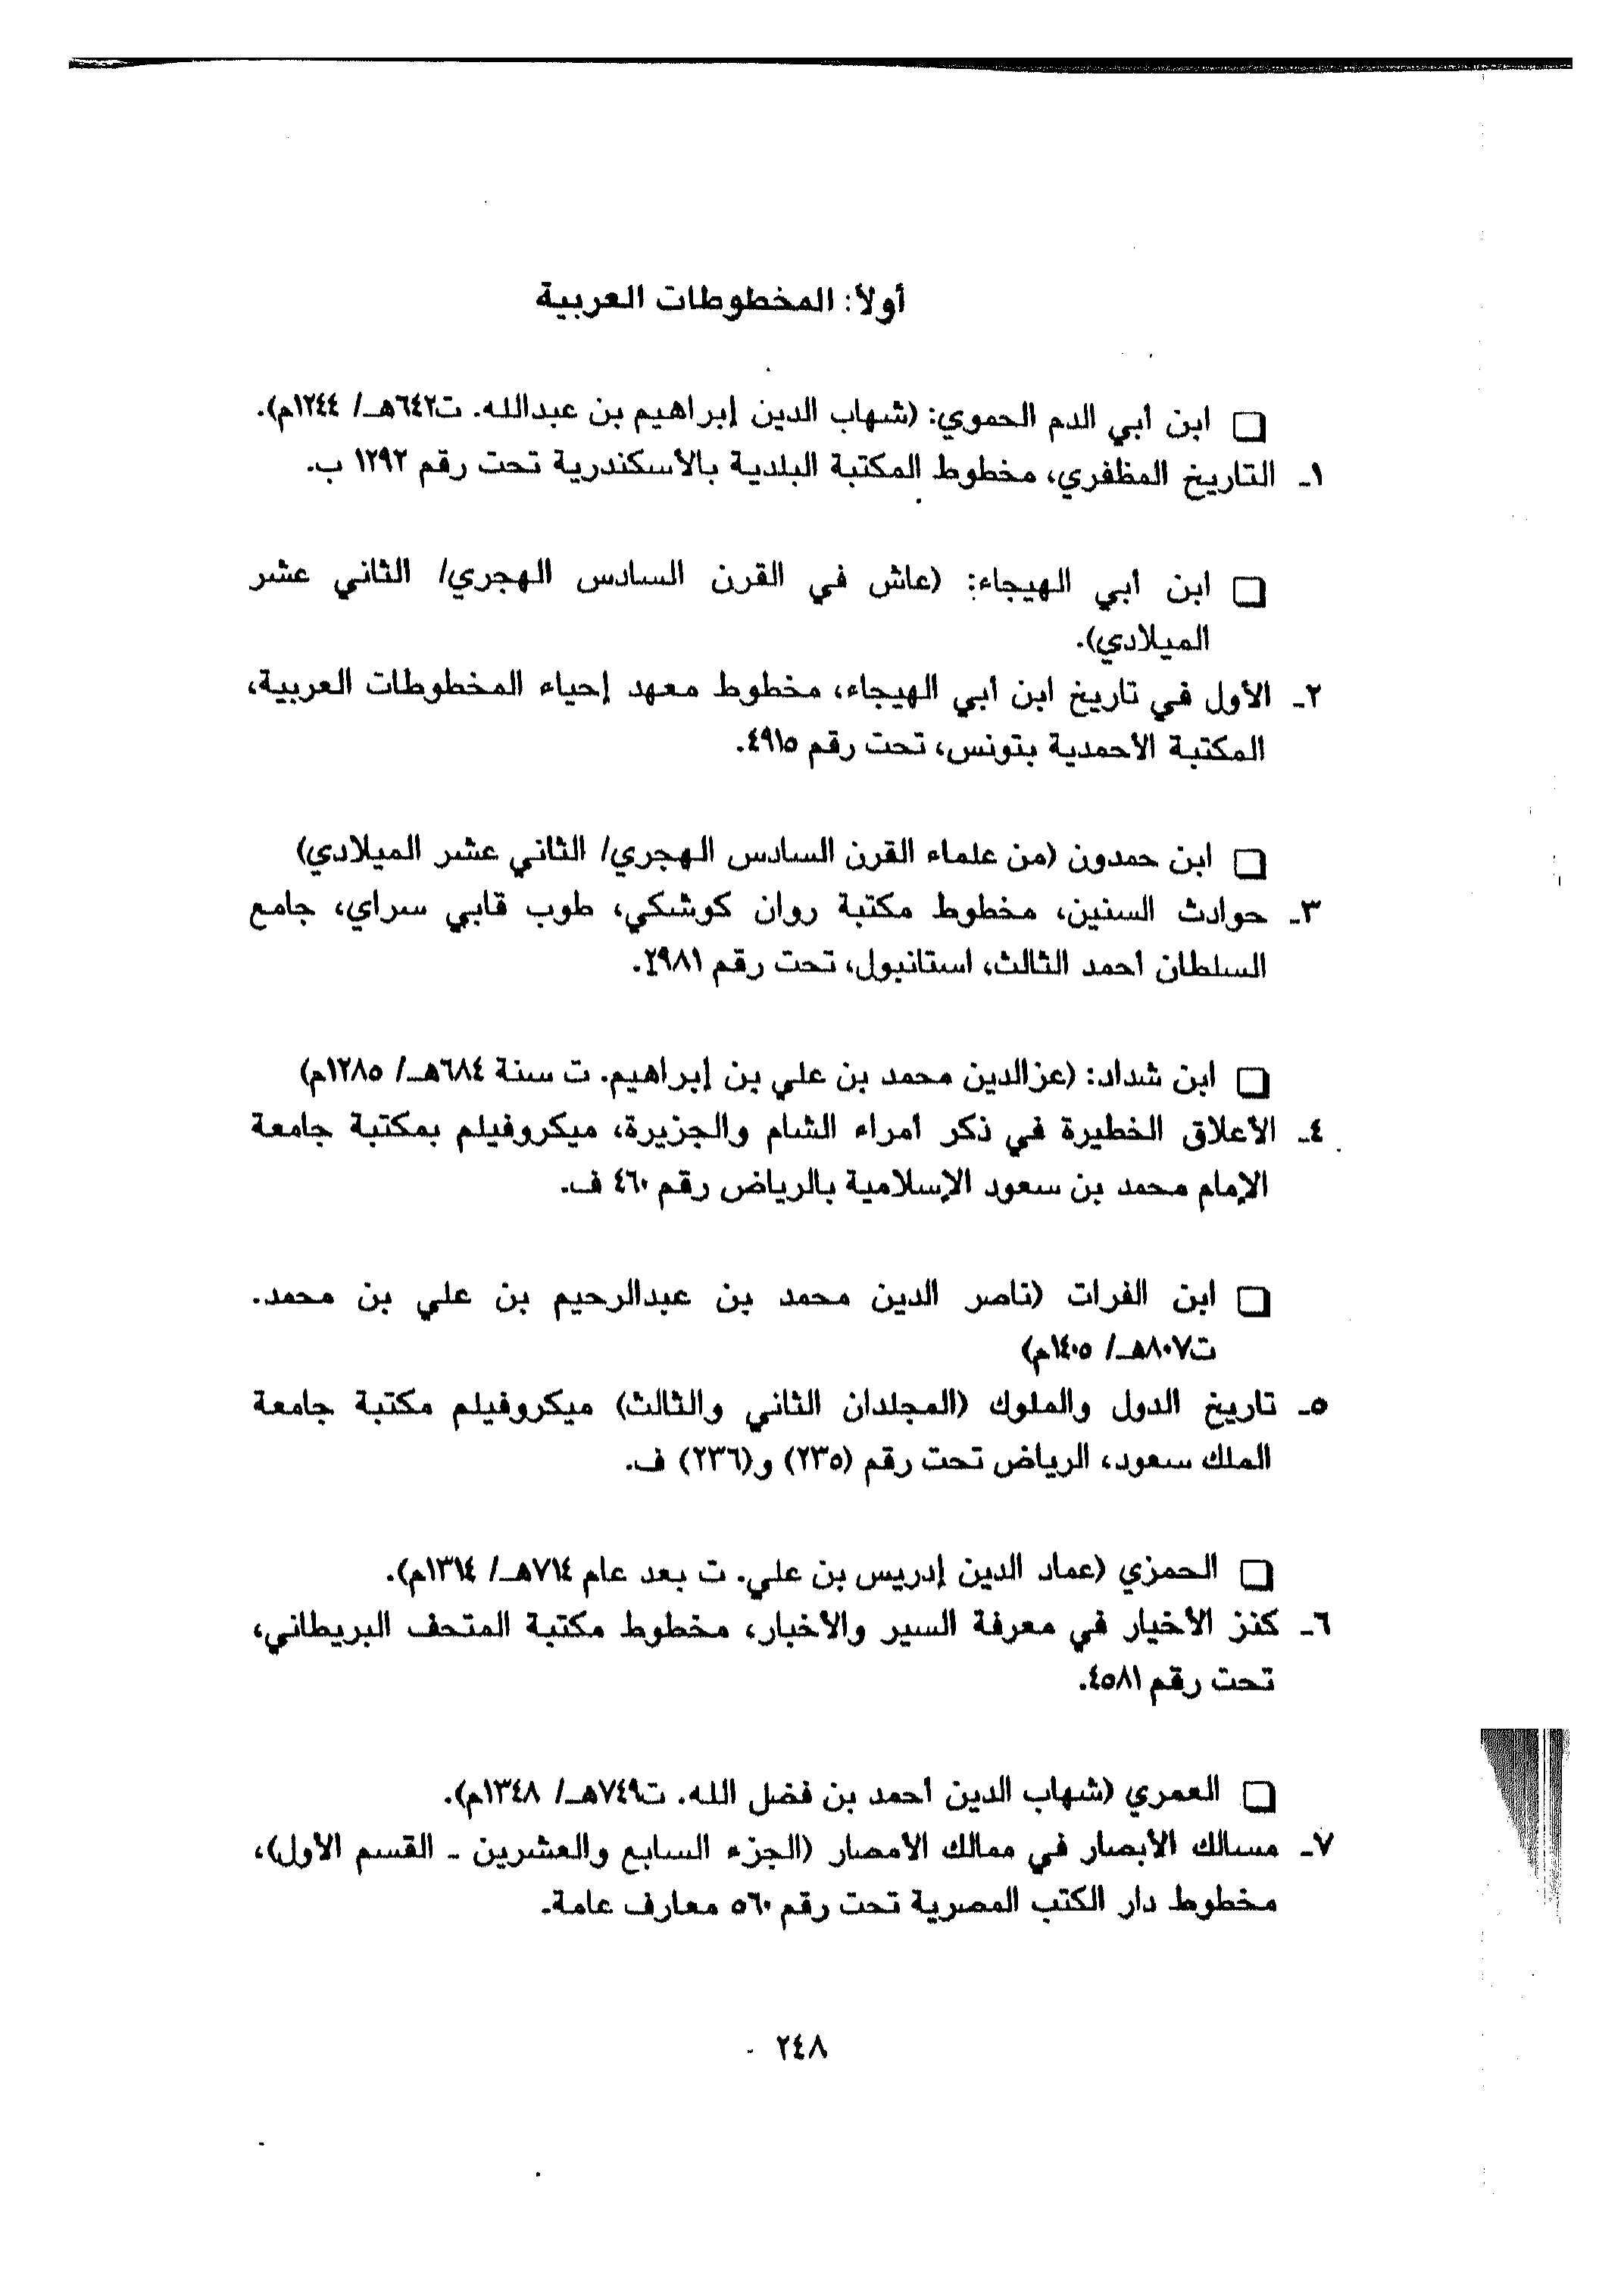 أولاً: المخطوطات العربية
❑ ابن أبي الدم الحموي: (شهاب الدين إبراهيم بن عبدالله. ت٦٤٢هـ/ ١٢٤٤م).
١ـ التاريخ المظفري، مخطوط المكتبة البلدية بالأسكندرية تحت رقم ١٢٩٢ ب.
❑ ابن أبي الهيجاء: (عاش في القرن السادس الهجري/ الثاني عشر
الميلادي).
٢ـ الأول في تاريخ ابن أبي الهيجاء، مخطوط معهد إحياء المخطوطات العربية،
المكتبة الأحمدية بتونس، تحت رقم ٤٩١٥.
❑ ابن حمدون (من علماء القرن السادس الهجري/ الثاني عشر الميلادي)
٣ـ حوادث السنين، مخطوط مكتبة روان كوشكي، طوب قابي سراي، جامع
السلطان أحمد الثالث، استانبول، تحت رقم ٢٩٨١.
❑ ابن شداد: (عزالدين محمد بن علي بن إبراهيم. ت سنة ٦٨٤هـ/ ١٢٨٥م)
٤ـ الأعلاق الخطيرة في ذكر أمراء الشام والجزيرة، ميكروفيلم بمكتبة جامعة
الإمام محمد بن سعود الإسلامية بالرياض رقم ٤٦٠ ف.
❑ ابن الفرات (ناصر الدين محمد بن عبدالرحيم بن علي بن محمد.
ت٨٠٧هـ/ ١٤٠٥م)
٥ـ تاريخ الدول والملوك (المجلدان الثاني والثالث) ميكروفيلم مكتبة جامعة
الملك سعود، الرياض تحت رقم (٢٣٥) و(٢٣٦) ف.
❑ الحمزي (عماد الدين إدريس بن علي. ت بعد عام ٧١٤هـ/ ١٣١٤م).
٦ـ كنز الأخيار في معرفة السير والأخبار، مخطوط مكتبة المتحف البريطاني،
تحت رقم ٤٥٨١.
❑ العمري (شهاب الدين أحمد بن فضل الله. ت٧٤٩هـ/ ١٣٤٨م).
٧ـ مسالك الأبصار في ممالك الأمصار (الجزء السابع والعشرين ـ القسم الأول)،
مخطوط دار الكتب المصرية تحت رقم ٥٦٠ معارف عامة.
٢٤٨